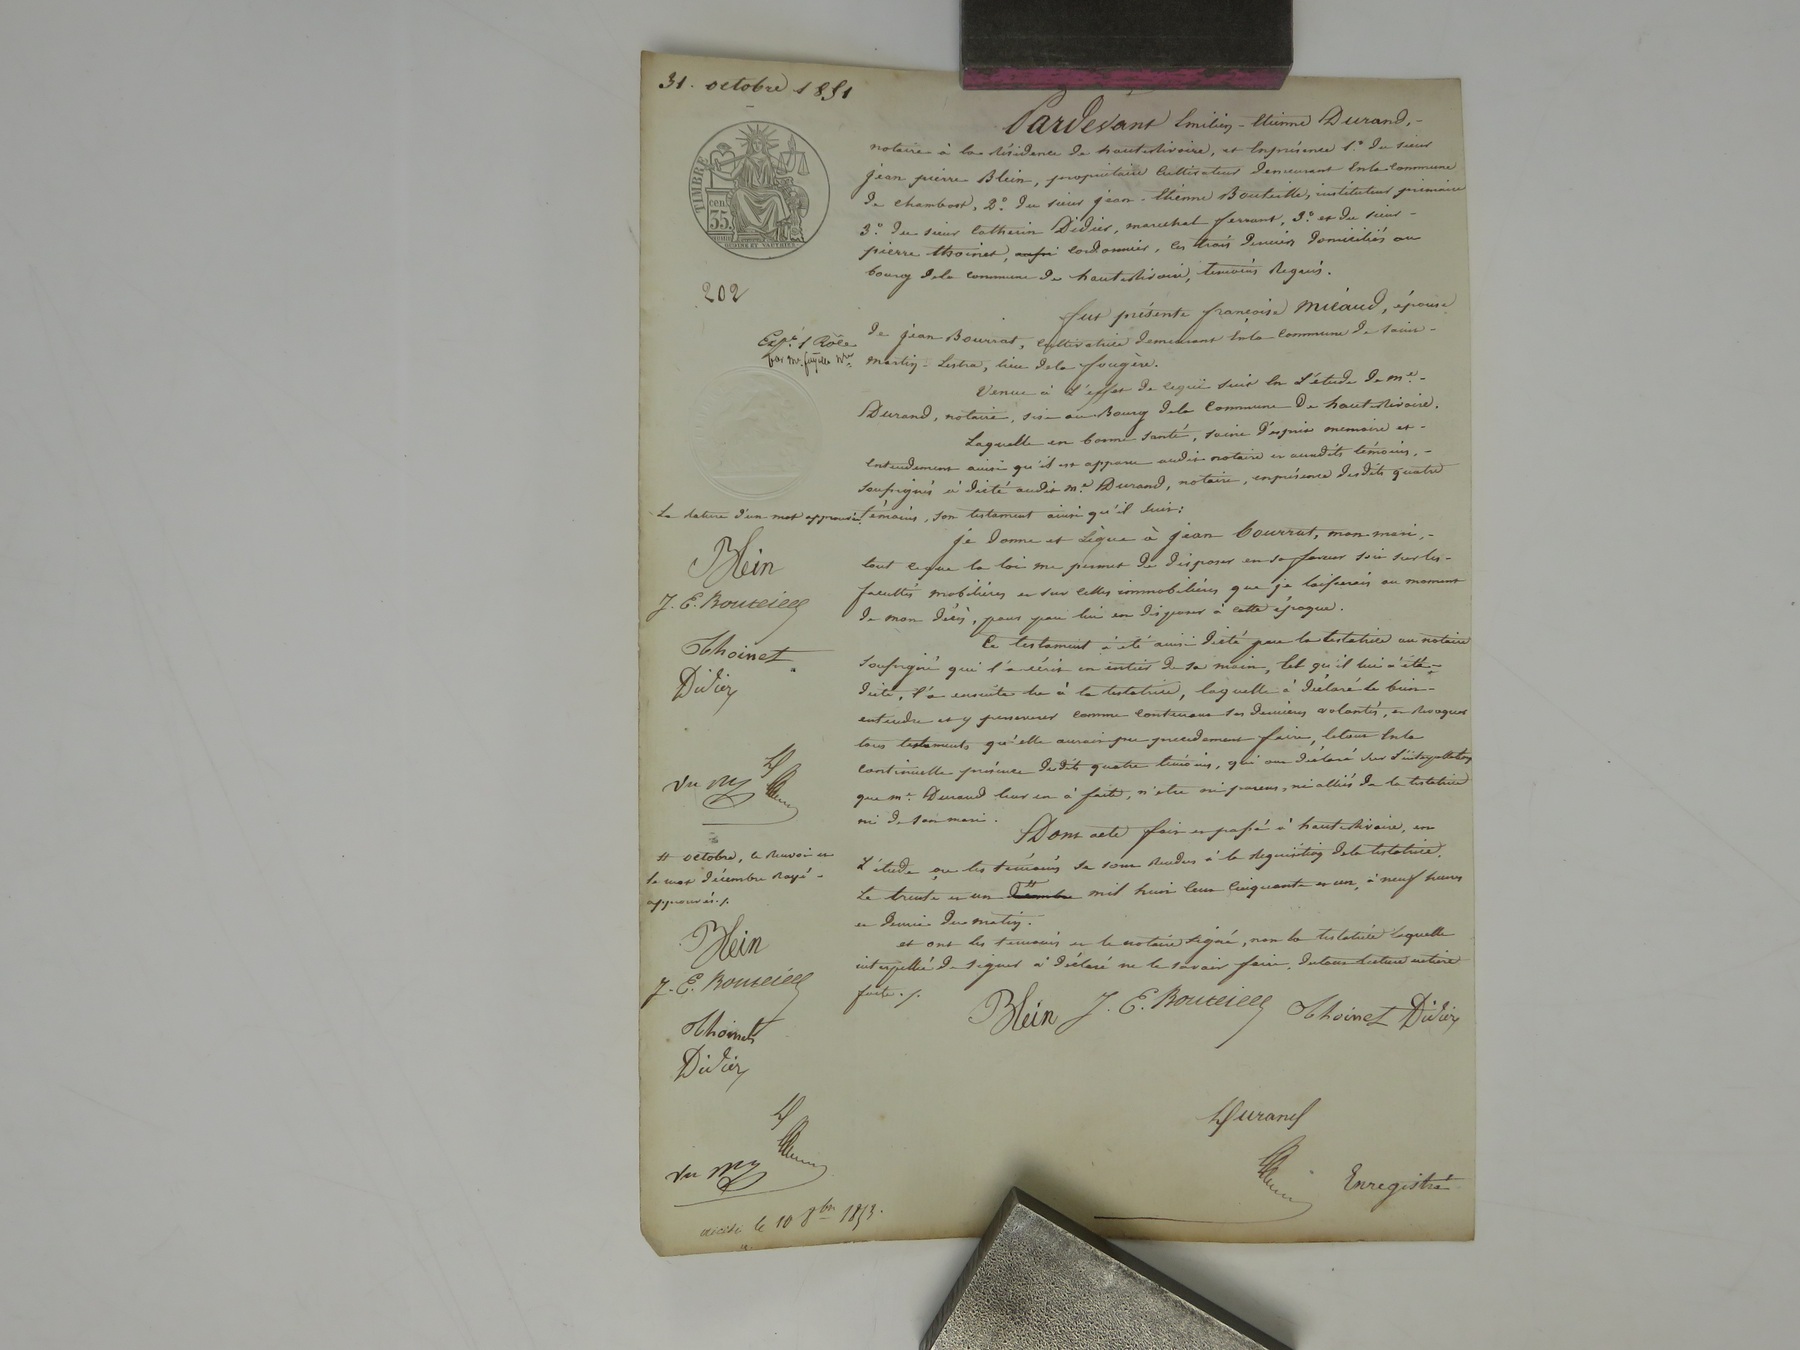 31. octobre 1851
Pardevant Emilien-Etienne Durand,-
notaire à la Résidence de hauteRivoire, et Enprésence 1.° du sieur
jean pierre Blein, propriétaire Cultivateur demeurant Enla Commune
de Chambost, 2.° du sieur jean-Etienne Bouteille, instituteur primaire
3.° du sieur Catherin Didier, maréchal ferrant, 3.° et du sieur-
pierre thoinet, cordonnier, les trois derniers domiciliés au
bourg dela commune de hauteRivoire, témoins Requis.
TIMBRE
cen.
35.
202
fut présente françoise Micaud, épouse
de jean Bourrat, Cultivatrice demeurant Enla Commune de saint-
Martin-Lestra, lieu dela fougère.
Exp.e 1 Rôle
Venue à L'effet de cequi suit En L'étude de me.-
Durand, notaire, sise au Bourg dela Commune De hauteRivoire.
Laquelle en bonne santé, saine d'esprit memoire et-
Entendement ainsi qu'il est apparu audit notaire et auxdits témoins,-
soussignés à dicté audit me. Durand, notaire, enprésence desdits quatre
témoins, son testament ainsi qu'il suit:
La Rature d'un mot approuvée.
je donne et Lègue à jean bourrat, mon mari,-
tout ceque la loi me permet de disposer en sa faveur soit sur les-
facultés mobilières et sur celles immobilières que je laisserais au moment
de mon décès, pour par lui en disposer à cette époque.
Blein
J. E. Bouteille
Thoinet
Didier
Ce testament à été ainsi dicté par la testatrice au notaire
soussigné qui l'a écrit en entier de sa main, tel qu'il lui à été-
dicté, l'a ensuite lu à la testatrice, laquelle à déclaré le bien-
entendre et y persévérer comme contenant ses dernières volontés, et Révoquer
tous testaments qu'elle aurait pu précédement faire, letout Enla
continuelle présence desdits quatre témoins, qui ont déclaré sur L'interpellation
que me. Durand leur en à faite, n'etre ni parens, ni alliés de la testatrice
ni de son mari.
D
Dont acte fait et passé à hauteRivoire, en
L'étude ou les témoins se sont Rendus à la Requisition dela testatrice.
Le trente et un mil huit cent Cinquante et un, à neuf heures
et demie du matin.
et ont les témoins et le notaire signé, non la testatrice laquelle
interpellée de signer à déclaré ne le savoir faire. detout Lecture entière
faite./.
# octobre, le Renvoi et
le mot décembre Rayé-
approuvés./.
Blein
J. E. Bouteille
Thoinet
Didier
Blein J. E. Bouteille Thoinet Didier
D
Durand
Enregistré
le 10 8bre 1853.